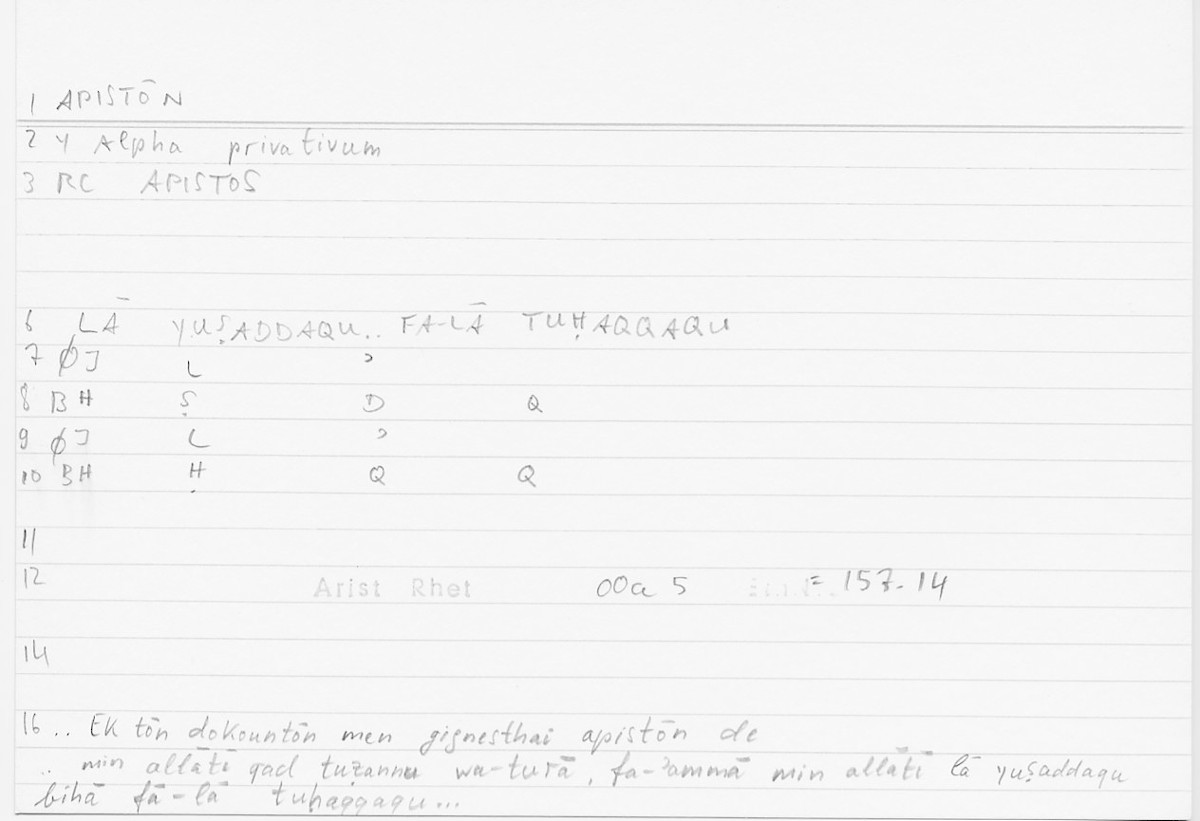 1 APISTŌN
2 Y Alpha privativum
3 RC APISTOS
6 LĀ YUṢADDAQU.. FA-LĀ TUḤAQQAQU
7 ØJ L ʾ
8 BH Ṣ D Q
9 ØJ L ʾ
10 BH Ḥ Q Q
11
12 Arist Rhet 00a 5 = 157.14
14
16 .. Ek tōn dokountōn men gignesthai apistōn de
.. min allātī qad tuẓannu wa-turā, fa-ʾammā min allātī lā yuṣaddaqu
bihā fā-lā tuḥaqqaqu...